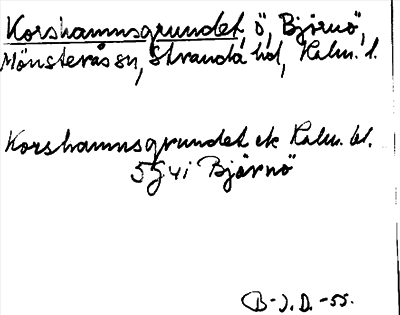 Korshamnsgrundet, ö, Björnö,
Mönsterås sn, Stranda hd, Kalm. l.
Korshamnsgrundet ek Kalm. bl.
5G4i Björnö
B-J.D.-55.